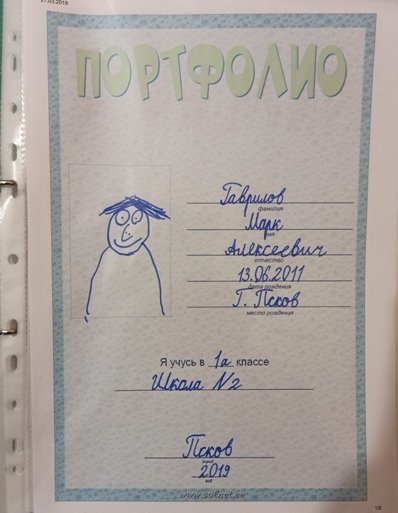 27.03.2019
ПОРТФОЛИО
Гаврилов
фамилия
Марк
имя
Алексеевич
отчество
13.06.2011
дата рождения
Г. Псков
место рождения
Я учусь в 1а классе
Школа №2
Псков
2019
год
www.solnet.ee
1/2